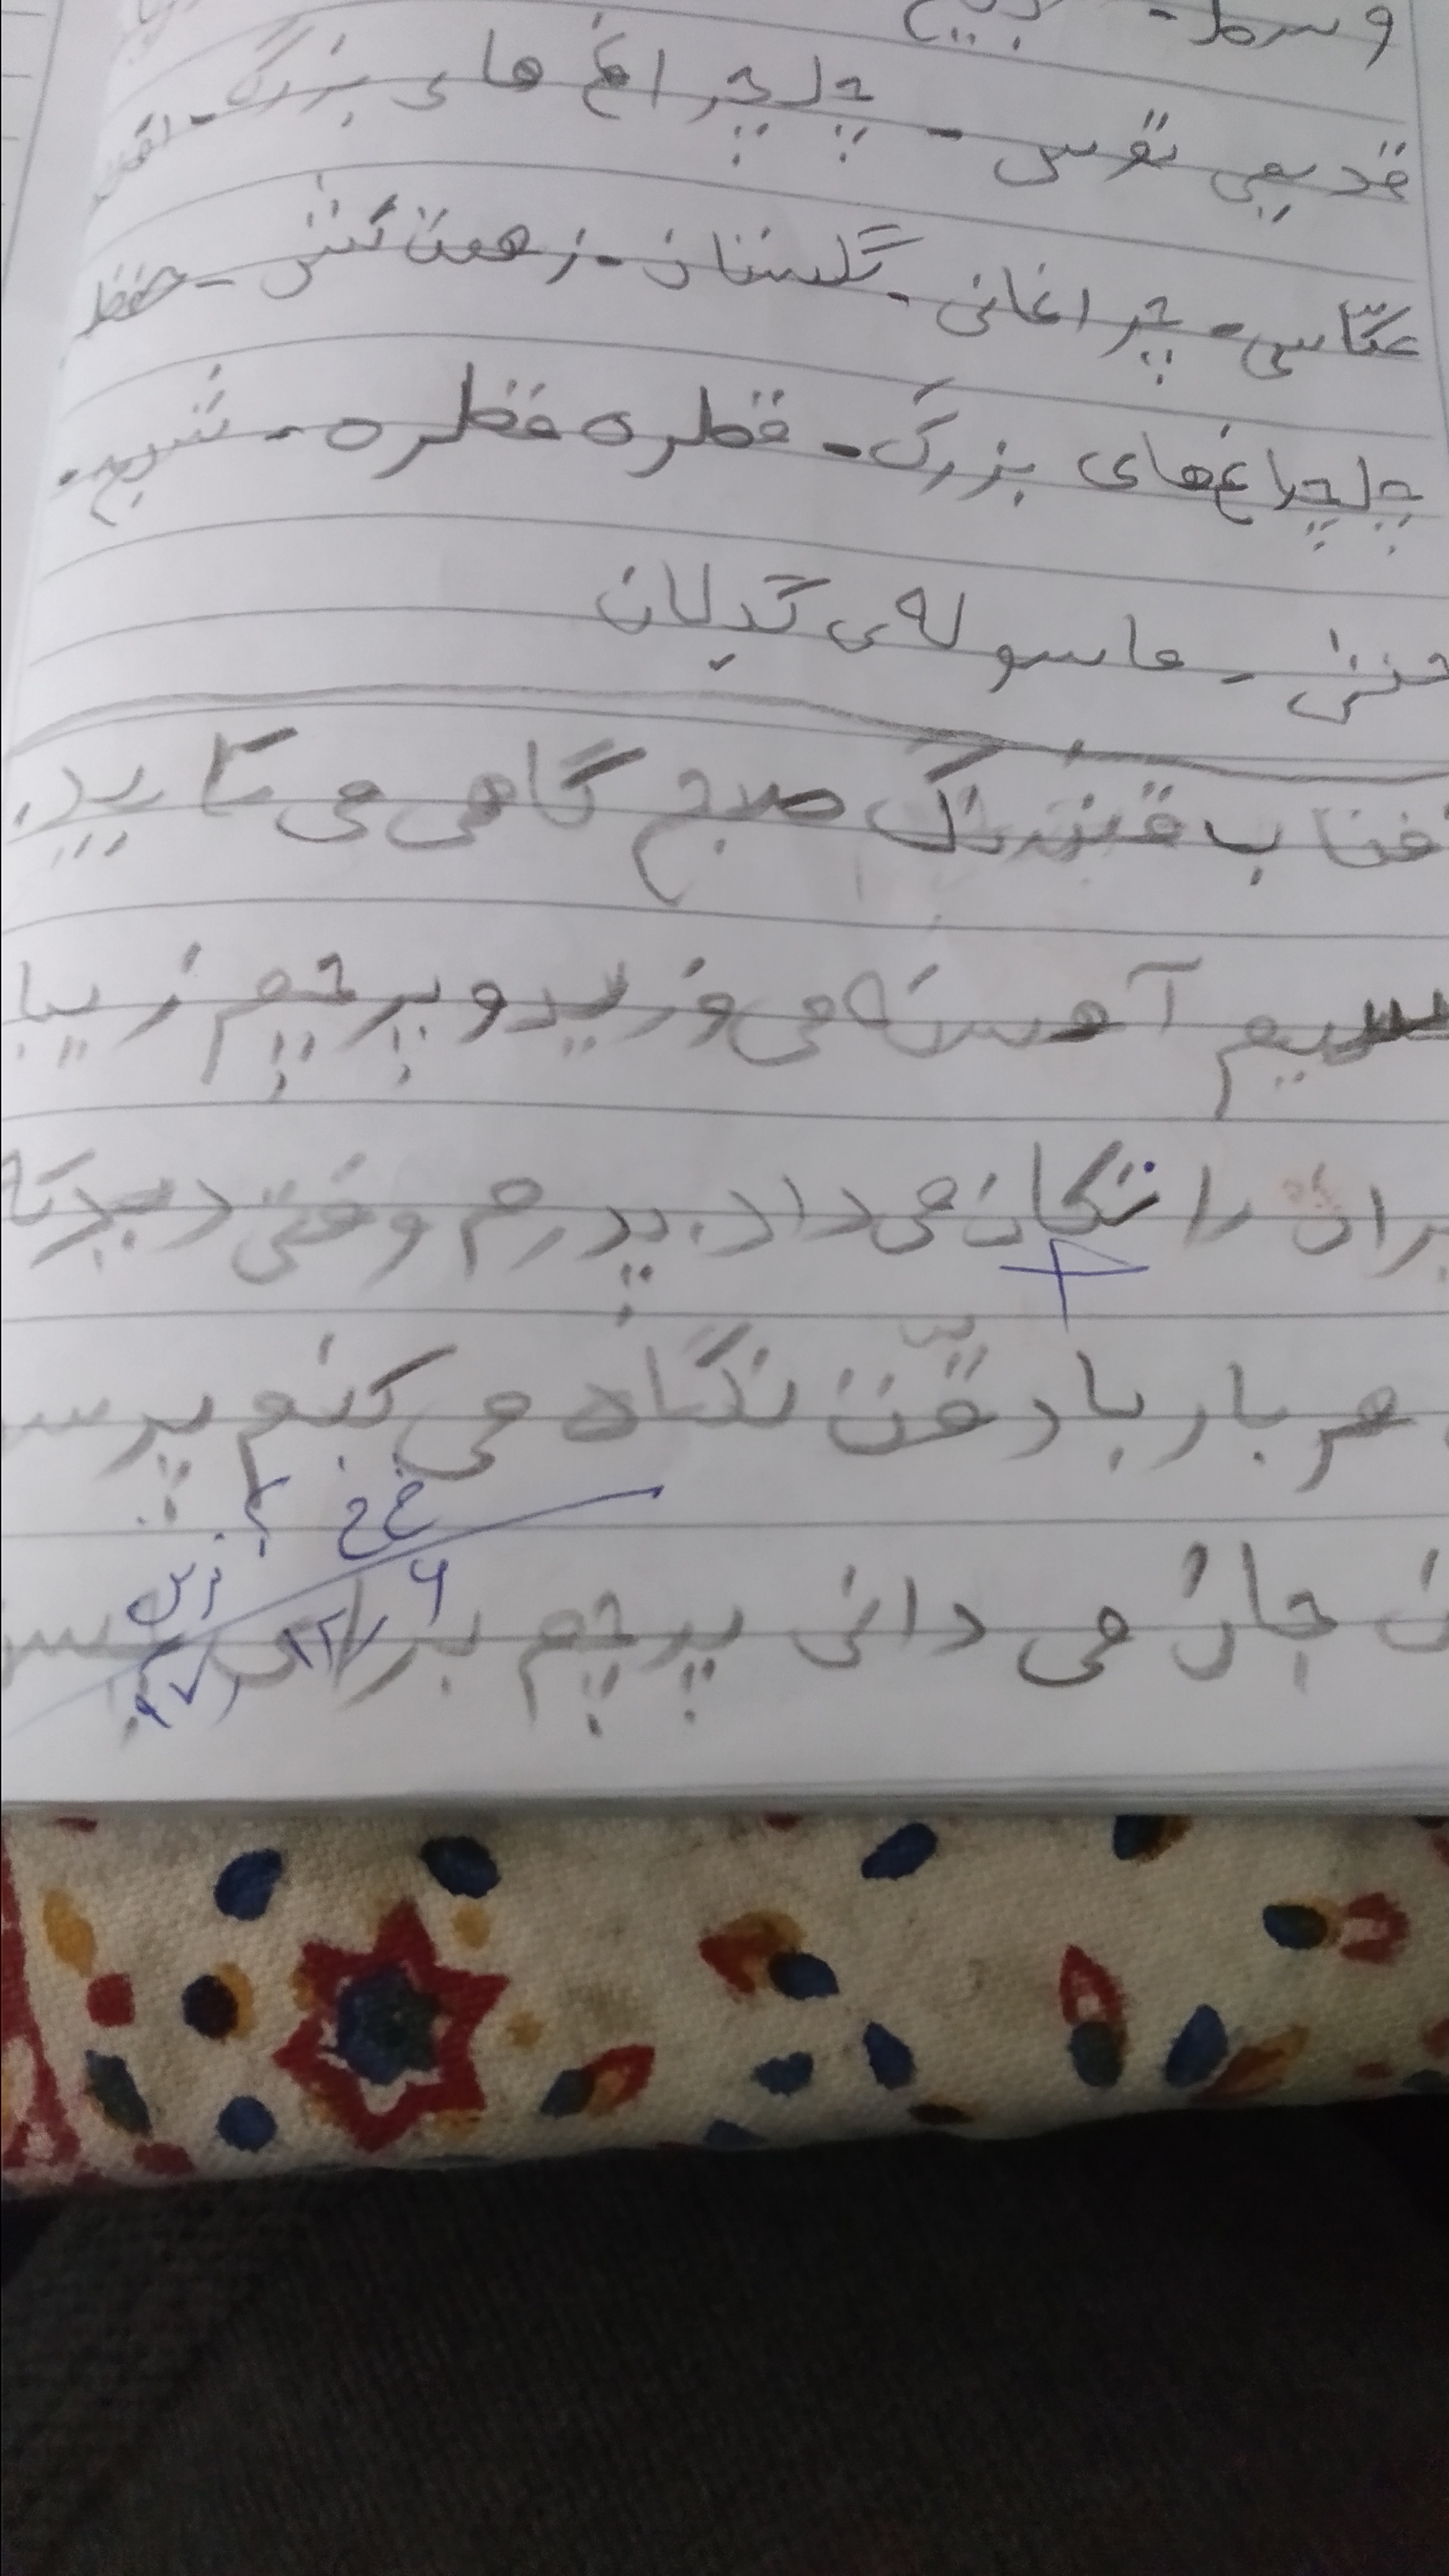 وسط -
قدیمی توس - چلچراغ های بزرگ -
عکّاسی - چراغانی - گلستان - زحمت کش - حفظ
چلچراغ‌های بزرگ - قطره قطره - شرح -
ماسوله‌ی گیلان
قشنگ صبح گاهی می تابید.
نسیم آهسته می وزید و پرچم زیبا
را تکان می داد. پدرم وقتی دید که
هر بار با دقّت نگاه می کنم پرس
جان می دانی پرچم برای